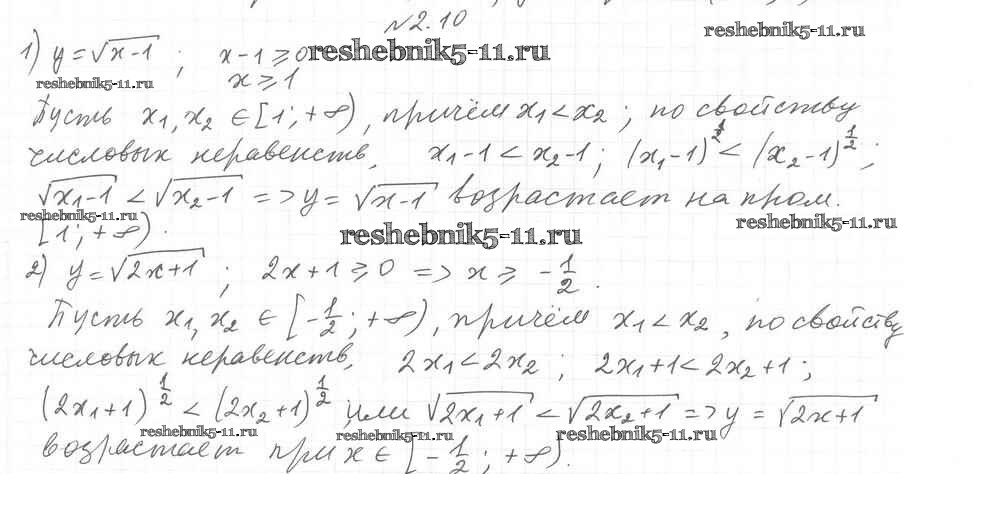 №2.10
reshebnik5-11.ru
1) y = √x-1 ; x-1 ⩾ 0 reshebnik5-11.ru
reshebnik5-11.ru x ⩾ 1
Пусть x₁, x₂ ∈ [1; +∞), причём x₁ < x₂ ; по свойству
числовых неравенств, x₁-1 < x₂-1 ; (x₁-1)^(1/2) < (x₂-1)^(1/2) ;
√x₁-1 < √x₂-1 => y = √x-1 возрастает на пром.
reshebnik5-11.ru reshebnik5-11.ru
[1; +∞). reshebnik5-11.ru
2) y = √2x+1 ; 2x+1 ⩾ 0 => x ⩾ -1/2.
Пусть x₁, x₂ ∈ [-1/2; +∞), причём x₁ < x₂, по свойству
числовых неравенств, 2x₁ < 2x₂ ; 2x₁+1 < 2x₂+1 ;
(2x₁+1)^(1/2) < (2x₂+1)^(1/2), или √2x₁+1 < √2x₂+1 => y = √2x+1
reshebnik5-11.ru reshebnik5-11.ru reshebnik5-11.ru
возрастает при x ∈ [-1/2; +∞).